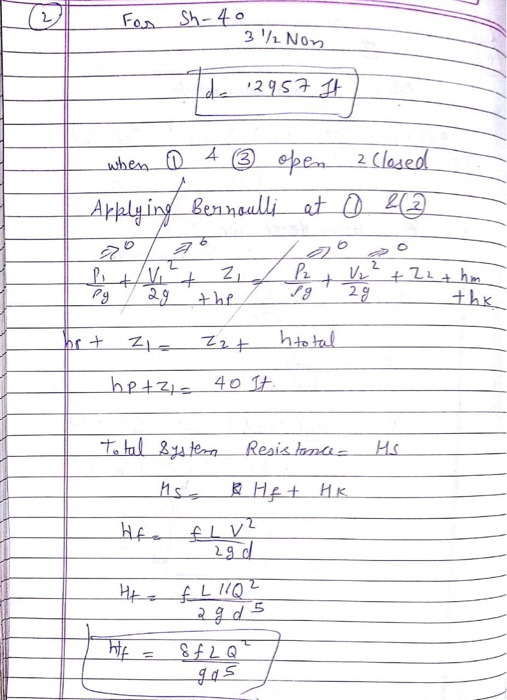 (2) For Sh-40
3 1/2 Nom
d = .2957 ft
when ① & ③ open 2 Closed
Applying Bernoulli at ① & ②
→0 →0 →0 →0
P₁/ρg + V₁²/2g + Z₁ + hp = P₂/ρg + V₂²/2g + Z₂ + hm + hk
hp + Z₁ = Z₂ + htotal
hp + Z₁ = 40 ft.
Total System Resistance = Hs
Hs = Hf + HK
Hf = fLV²/2gd
Hf = fL11Q²/2gd⁵
Hf = 8fLQ²/gd⁵